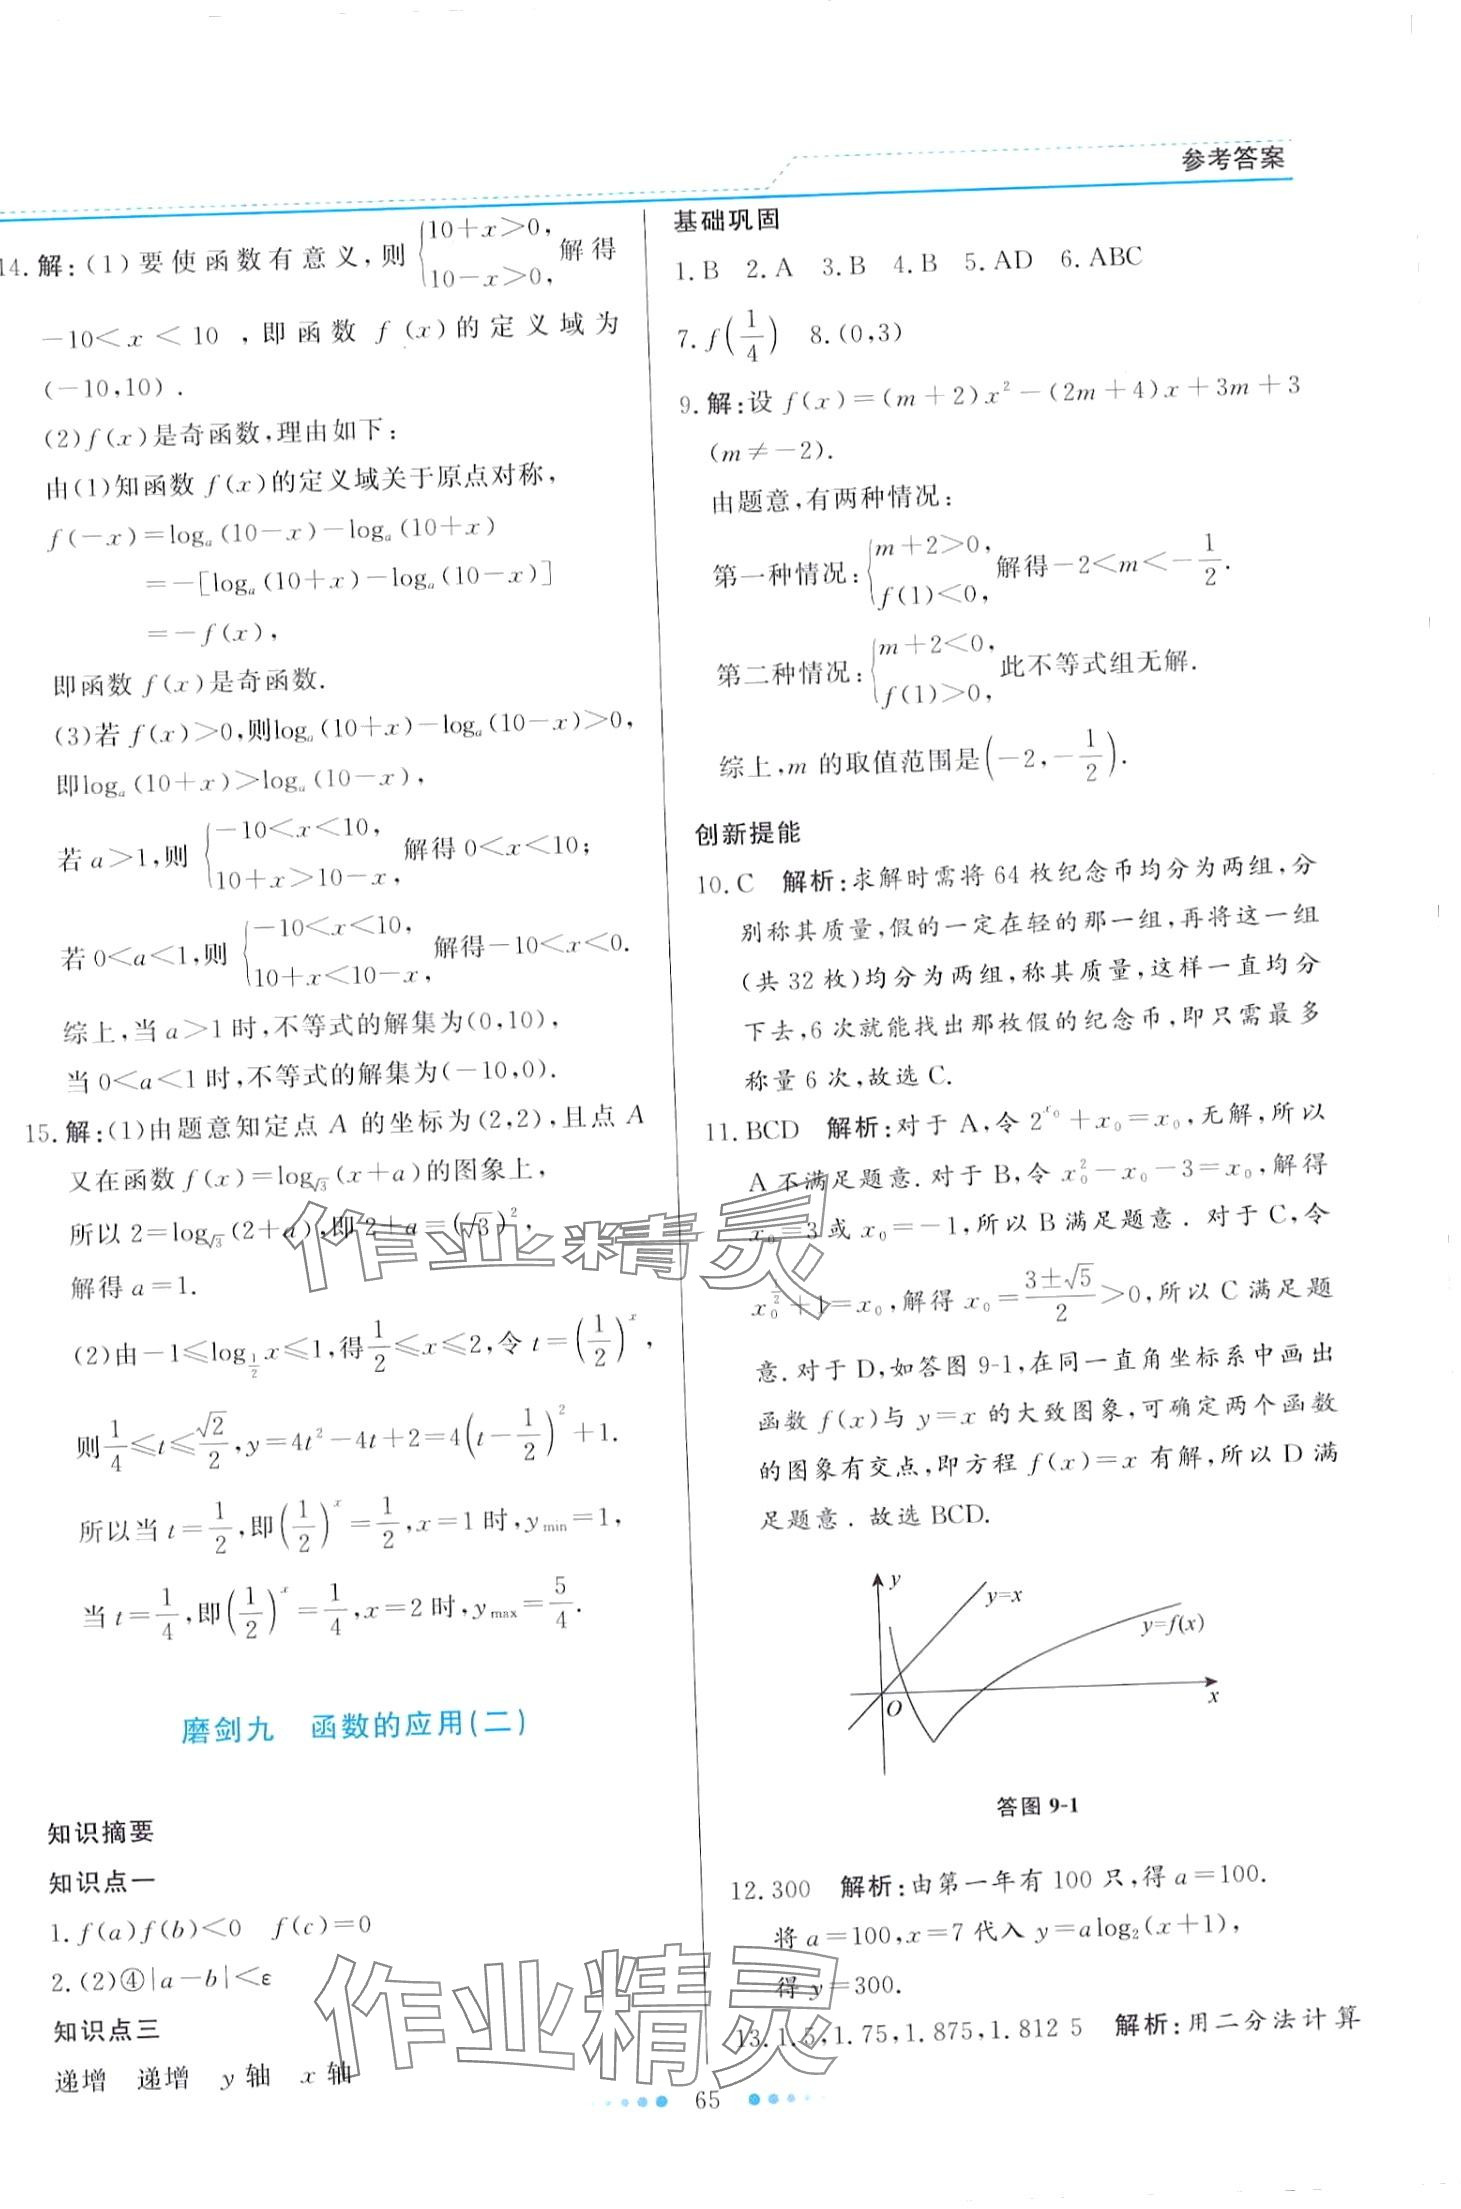 参考答案
14.解:(1)要使函数有意义,则{10+x>0, 10-x>0,解得
-10<x<10,即函数 f(x)的定义域为
(-10,10).
(2)f(x)是奇函数,理由如下:
由(1)知函数 f(x)的定义域关于原点对称,
f(-x)=logₐ(10-x)-logₐ(10+x)
=-[logₐ(10+x)-logₐ(10-x)]
=-f(x),
即函数 f(x)是奇函数.
(3)若 f(x)>0,则logₐ(10+x)-logₐ(10-x)>0,
即logₐ(10+x)>logₐ(10-x),
若 a>1,则{-10<x<10, 10+x>10-x,解得 0<x<10;
若 0<a<1,则{-10<x<10, 10+x<10-x,解得-10<x<0.
综上,当 a>1 时,不等式的解集为(0,10),
当 0<a<1 时,不等式的解集为(-10,0).
15.解:(1)由题意知定点 A 的坐标为(2,2),且点 A
又在函数 f(x)=log_{√3}(x+a)的图象上,
所以 2=log_{√3}(2+a),即 2+a=(√3)²,
解得 a=1.
(2)由-1≤log_{1/2}x≤1,得1/2≤x≤2,令 t=(1/2)^x,
则1/4≤t≤√2/2,y=4t²-4t+2=4(t-1/2)²+1.
所以当 t=1/2,即(1/2)^x=1/2,x=1 时,y_min=1,
当 t=1/4,即(1/2)^x=1/4,x=2 时,y_max=5/4.
磨剑九 函数的应用(二)
知识摘要
知识点一
1.f(a)f(b)<0 f(c)=0
2.(2)④|a-b|<ε
知识点三
递增 递增 y 轴 x 轴
基础巩固
1.B 2.A 3.B 4.B 5.AD 6.ABC
7.f(1/4) 8.(0,3)
9.解:设 f(x)=(m+2)x²-(2m+4)x+3m+3
(m≠-2).
由题意,有两种情况:
第一种情况:{m+2>0, f(1)<0,解得-2<m<-1/2.
第二种情况:{m+2<0, f(1)>0,此不等式组无解.
综上,m 的取值范围是(-2,-1/2).
创新提能
10.C 解析:求解时需将 64 枚纪念币均分为两组,分
别称其质量,假的一定在轻的那一组,再将这一组
(共 32 枚)均分为两组,称其质量,这样一直均分
下去,6 次就能找出那枚假的纪念币,即只需最多
称量 6 次,故选 C.
11.BCD 解析:对于 A,令 2^{x₀}+x₀=x₀,无解,所以
A 不满足题意.对于 B,令 x₀²-x₀-3=x₀,解得
x₀=3 或 x₀=-1,所以 B 满足题意.对于 C,令
x₀^{1/2}+1=x₀,解得 x₀=(3±√5)/2>0,所以 C 满足题
意.对于 D,如答图 9-1,在同一直角坐标系中画出
函数 f(x)与 y=x 的大致图象,可确定两个函数
的图象有交点,即方程 f(x)=x 有解,所以 D 满
足题意.故选 BCD.
y
y=x
y=f(x)
O
x
答图 9-1
12.300 解析:由第一年有 100 只,得 a=100.
将 a=100,x=7 代入 y=alog₂(x+1),
得 y=300.
13.1.5,1.75,1.875,1.812 5 解析:用二分法计算
65
作业精灵
作业精灵